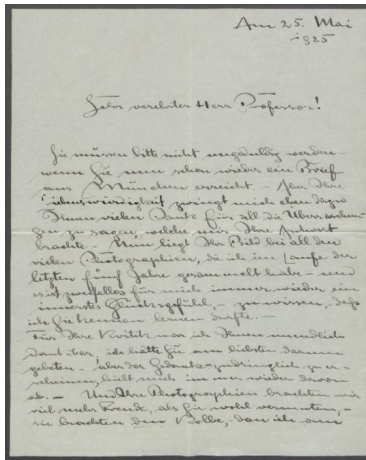 Am 25. Mai
1925
Sehr verehrter Herr Professor!
Sie müssen bitte nicht ungeduldig werden -
wenn Sie nun schon wieder ein Brief
aus München erreicht. - Aber Ihre
Liebenswürdigkeit zwingt mich eben dazu
Ihnen vielen Dank für all die Überraschun-
gen zu sagen, welche mir Ihre Antwort
brachte. - Nun liegt Ihr Bild bei all den
vielen Photographien, die ich im Laufe der
letzten fünf Jahre gesammelt habe - und
es ist zweifellos für mich immer wieder ein
Glücksgefühl, - zu wissen, daß
ich Sie kennen lernen durfte. -
Für Ihre Kritik war ich Ihnen unendlich
dankbar, ich hätte Sie am liebsten darum
gebeten - aber der Gedanke zudringlich zu er-
scheinen, hielt mich immer wieder davon
ab. - Und Ihre Photographien brachten mir
viel mehr Freude, als Sie wohl vermuten, -
sie brachten dem den ich am